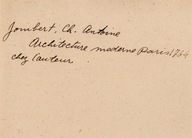 Jombert, Ch. Antoine
Architecture moderne Paris 1764
chez l'auteur